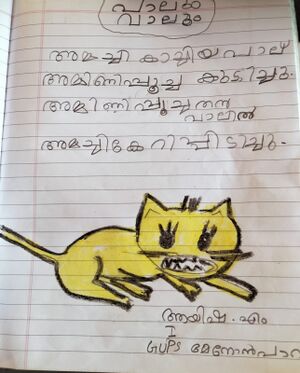 പാലും
വാലും
അമ്മച്ചി കാച്ചിയ പാല്
അമ്മിണിപ്പൂച്ച കുടിച്ചു.
അമ്മിണിപ്പൂച്ചതൻ
വാലിൽ
അമ്മച്ചികേറിപ്പിടിച്ചു.
ആയിഷ. എം
I
GUPS മേനോൻപാറ